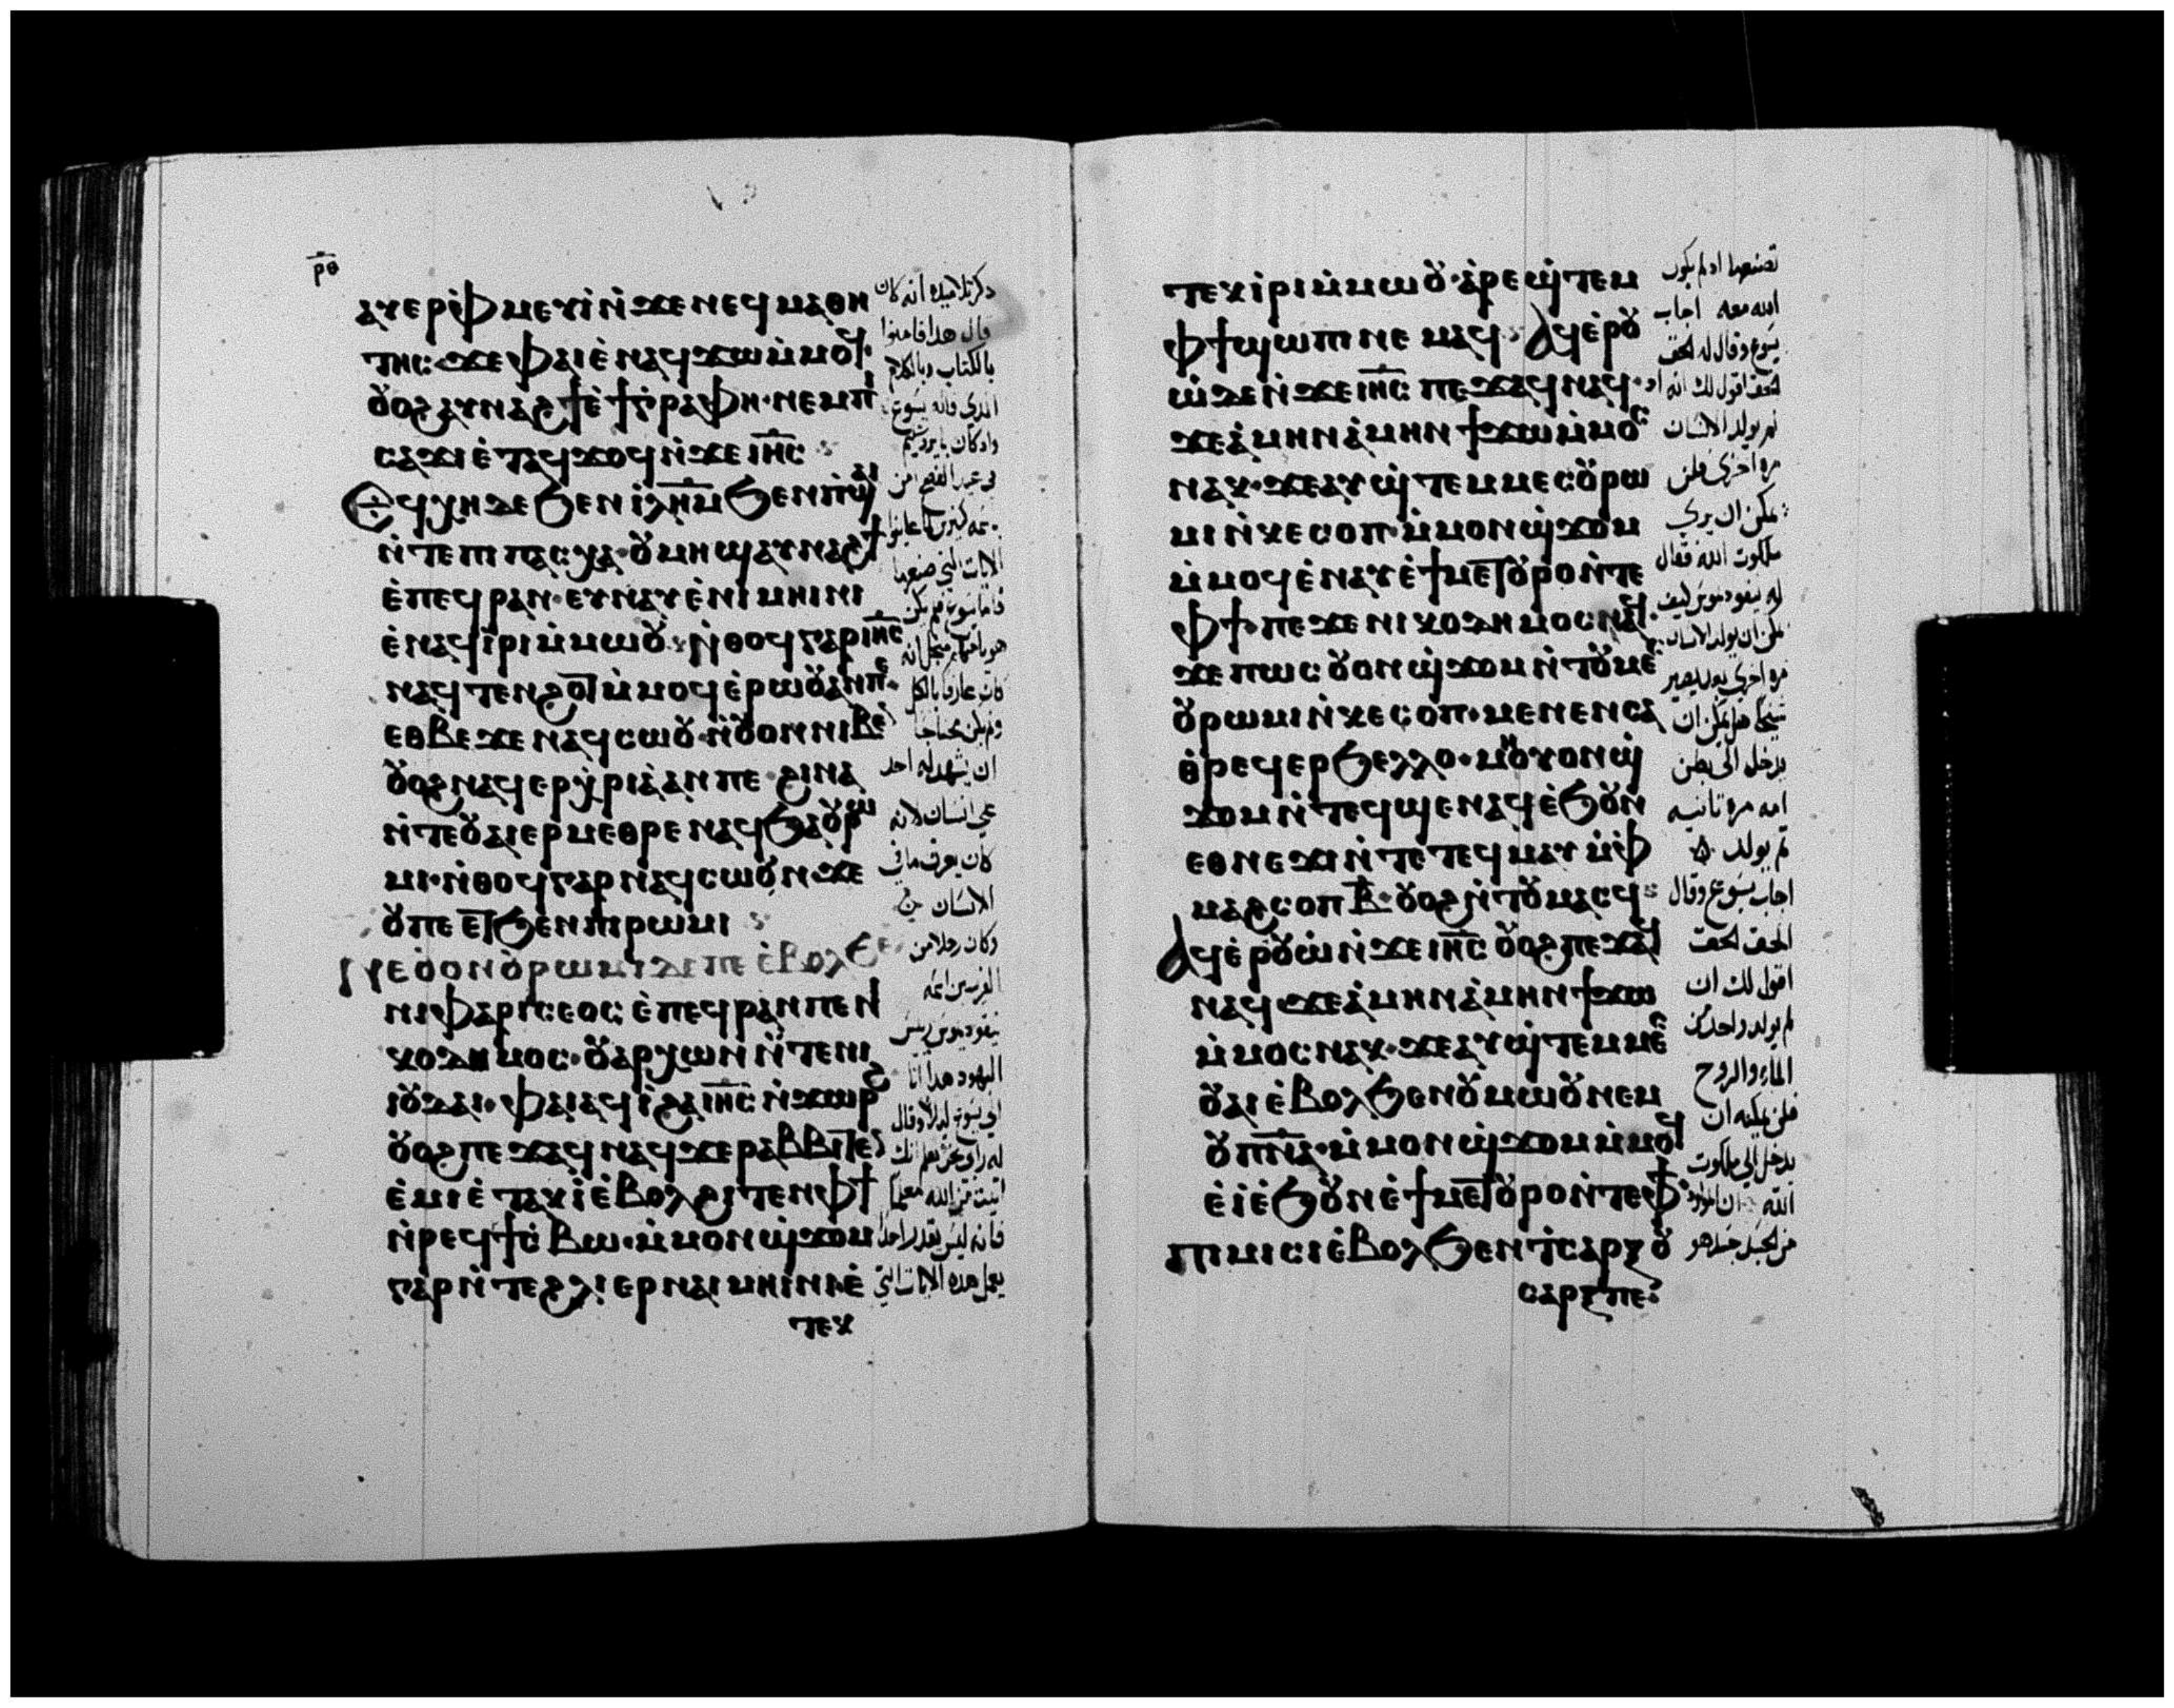 ⲣ̅ⲑ̅
ⲁⲩⲉⲣⲫ̀ⲙⲉⲩⲓ ⲛ̀ϫⲉ ⲛⲉϥⲙⲁⲑⲏ
ⲧⲏⲥ ϫⲉ ⲫⲁⲓ ⲉ̀ⲛⲁϥϫⲱ ⲙ̀ⲙⲟϥ·
ⲟⲩⲟϩ ⲁⲩⲛⲁϩϯ ⲉ̀ϯⲅⲣⲁⲫⲏ· ⲛⲉⲙ ⲡⲓ
ⲥⲁϫⲓ ⲉ̀ⲧⲁϥϫⲟϥ ⲛ̀ϫⲉ ⲓⲏ̅ⲥ̅
Ⲉϥⲭⲏ ⲇⲉ ϧⲉⲛ ⲓⲗ̅ⲏ̅ⲙ̅ ϧⲉⲛ ⲡ̀ϣⲁⲓ
ⲛ̀ⲧⲉ ⲡⲓⲡⲁⲥⲭⲁ· ⲟⲩⲙⲏϣ ⲁⲩⲛⲁϩϯ
ⲉ̀ⲡⲉϥⲣⲁⲛ· ⲉⲩⲛⲁⲩ ⲉ̀ⲛⲓⲙⲏⲓⲛⲓ
ⲉ̀ⲛⲁϥⲓⲣⲓ ⲙ̀ⲙⲱⲟⲩ· ⲛ̀ⲑⲟϥ ⲅⲁⲣ ⲓⲏ̅ⲥ̅
ⲛⲁϥⲧⲉⲛϩⲟⲩⲧ ⲙ̀ⲙⲟϥ ⲉ̀ⲣⲱⲟⲩ ⲁⲛ ⲡⲉ·
ⲉⲑⲃⲉ ϫⲉ ⲛⲁϥⲥⲱⲟⲩⲛ ⲛ̀ⲟⲩⲟⲛ ⲛⲓⲃⲉⲛ
ⲟⲩⲟϩ ⲛⲁϥⲉⲣⲭ̀ⲣⲓⲁ ⲁⲛ ⲡⲉ· ϩⲓⲛⲁ
ⲛ̀ⲧⲉ ⲟⲩⲁⲓ ⲉⲣⲙⲉⲑⲣⲉ ⲛⲁϥ ϧⲁ ⲟⲩⲣⲱ
ⲙⲓ· ⲛ̀ⲑⲟϥ ⲅⲁⲣ ⲛⲁϥⲥⲱⲟⲩⲛ ϫⲉ
ⲟⲩ ⲡⲉⲧϧⲉⲛ ⲡⲓⲣⲱⲙⲓ
ⲛⲉ ⲟⲩⲟⲛ ⲟⲩⲣⲱⲙⲓ ⲇⲉ ⲡⲉ ⲉ̀ⲃⲟⲗ ϧⲉⲛ
ⲛⲓⲫⲁⲣⲓⲥⲉⲟⲥ ⲉ̀ⲡⲉϥⲣⲁⲛ ⲡⲉ ⲛⲓ
ⲕⲟⲇⲏⲙⲟⲥ· ⲟⲩⲁⲣⲭⲱⲛ ⲛ̀ⲧⲉ ⲛⲓ
ⲓⲟⲩⲇⲁⲓ· ⲫⲁⲓ ⲁϥⲓ̀ ϩⲁ ⲓⲏ̅ⲥ̅ ⲛ̀ϫⲱⲣϩ
ⲟⲩⲟϩ ⲡⲉϫⲁϥ ⲛⲁϥ ϫⲉ ⲣⲁⲃⲃⲓ ⲧⲉⲛ
ⲉ̀ⲙⲓ ⲉ̀ⲧⲁⲕⲓ̀ ⲉ̀ⲃⲟⲗ ϩⲓⲧⲉⲛ ⲫϯ
ⲛ̀ⲣⲉϥϯⲥ̀ⲃⲱ· ⲙ̀ⲙⲟⲛ ϣ̀ϫⲟⲙ
ⲅⲁⲣ ⲛ̀ⲧⲉ ϩⲗⲓ ⲉⲣ ⲛⲁⲓⲙⲏⲓⲛⲓ ⲉ̀
ⲧⲉⲕ
ذكر تلاميذه انه كان
قال هذا فامنوا
بالكتاب وبالكلام
الذي قاله يسوع
واذ كان بايروشليم
في عيد الفصح امن
الايات التي صنعها
كان عارفا بالكل
ولم يكن محتاجا
ان يشهد له احد
على انسان لانه
كان يعرف ما في
الانسان
وكان رجلا من
الفريسيين اسمه
نيقوديموس ريس
اليهود هذا اتا
الي يسوع ليلا وقال
له رابي نحن نعلم انك
اتيت من الله معلما
فانه ليس يقدر احدا
يعمل هذه الايات التي
ⲧⲉⲕⲓⲣⲓ ⲙ̀ⲙⲱⲟⲩ· ⲁ̀ⲣⲉϣ̀ⲧⲉⲙ
ⲫϯ ϣⲱⲡⲓ ⲛⲉⲙⲁϥ· Ⲁϥⲉ̀ⲣⲟⲩ
ⲱ̀ ⲇⲉ ⲛ̀ϫⲉ ⲓⲏ̅ⲥ̅ ⲡⲉϫⲁϥ ⲛⲁϥ·
ϫⲉ ⲁ̀ⲙⲏⲛ ⲁ̀ⲙⲏⲛ ϯϫⲱ ⲙ̀ⲙⲟⲥ
ⲛⲁⲕ· ϫⲉ ⲁⲩϣ̀ⲧⲉⲙⲙⲉⲥ ⲟⲩⲣⲱ
ⲙⲓ ⲛ̀ⲕⲉⲥⲟⲡ· ⲙ̀ⲙⲟⲛ ϣ̀ϫⲟⲙ
ⲙ̀ⲙⲟϥ ⲉ̀ⲛⲁⲩ ⲉ̀ϯⲙⲉⲧⲟⲩⲣⲟ ⲛ̀ⲧⲉ
ⲫϯ· ⲡⲉϫⲉ ⲛⲓⲕⲟⲇⲏⲙⲟⲥ ⲛⲁϥ·
ϫⲉ ⲡⲱⲥ ⲟⲩⲟⲛ ϣ̀ϫⲟⲙ ⲛ̀ⲧⲟⲩⲙⲉⲥ
ⲟⲩⲣⲱⲙⲓ ⲛ̀ⲕⲉⲥⲟⲡ· ⲙⲉⲛⲉⲛⲥⲁ
ⲑ̀ⲣⲉϥⲉⲣϧⲉⲗⲗⲟ· ⲙⲏ ⲟⲩⲟⲛ ϣ̀
ϫⲟⲙ ⲛ̀ⲧⲉϥϣⲉ ⲛⲁϥ ⲉ̀ϧⲟⲩⲛ
ⲉⲑⲛⲉϫⲓ ⲛ̀ⲧⲉ ⲧⲉϥⲙⲁⲩ ⲙ̀ⲫ
ⲙⲁϩⲥⲟⲡ ⲃ̅· ⲟⲩⲟϩ ⲛ̀ⲧⲟⲩⲙⲁⲥϥ
Ⲁϥⲉ̀ⲣⲟⲩⲱ̀ ⲛ̀ϫⲉ ⲓⲏ̅ⲥ̅ ⲟⲩⲟϩ ⲡⲉϫⲁϥ
ⲛⲁϥ ϫⲉ ⲁ̀ⲙⲏⲛ ⲁ̀ⲙⲏⲛ ϯϫⲱ
ⲙ̀ⲙⲟⲥ ⲛⲁⲕ· ϫⲉ ⲁⲩϣ̀ⲧⲉⲙⲙⲉⲥ
ⲟⲩⲁⲓ ⲉ̀ⲃⲟⲗ ϧⲉⲛ ⲟⲩⲙⲱⲟⲩ ⲛⲉⲙ
ⲟⲩⲡ̅ⲛ̅ⲁ̅· ⲙ̀ⲙⲟⲛ ϣ̀ϫⲟⲙ ⲙ̀ⲙⲟϥ
ⲉ̀ⲓ̀ ⲉ̀ϧⲟⲩⲛ ⲉ̀ϯⲙⲉⲧⲟⲩⲣⲟ ⲛ̀ⲧⲉ ⲫϯ
ⲡⲓⲙⲓⲥⲓ ⲉ̀ⲃⲟⲗ ϧⲉⲛ ⲧ̀ⲥⲁⲣⲝ ⲟⲩ
ⲥⲁⲣⲝ ⲡⲉ
تصنعها اذ لم يكون
الله معه اجاب
يسوع وقال له الحق
الحق اقول لك انه ان
لم يولد الانسان
مرة اخرى فلن
يمكن ان يري
ملكوت الله فقال
له نيقوديموس كيف
يمكن ان يولد الانسان
شيخا هل يمكن ان
يدخل الى بطن
امه مره ثانيه
ثم يولد
اجاب يسوع وقال
الحق الحق
اقول لك ان
لم يولد واحد من
الماء والروح
فلن يمكنه ان
يدخل الي ملكوت
الله ان المولود
من الجسد جسد هو